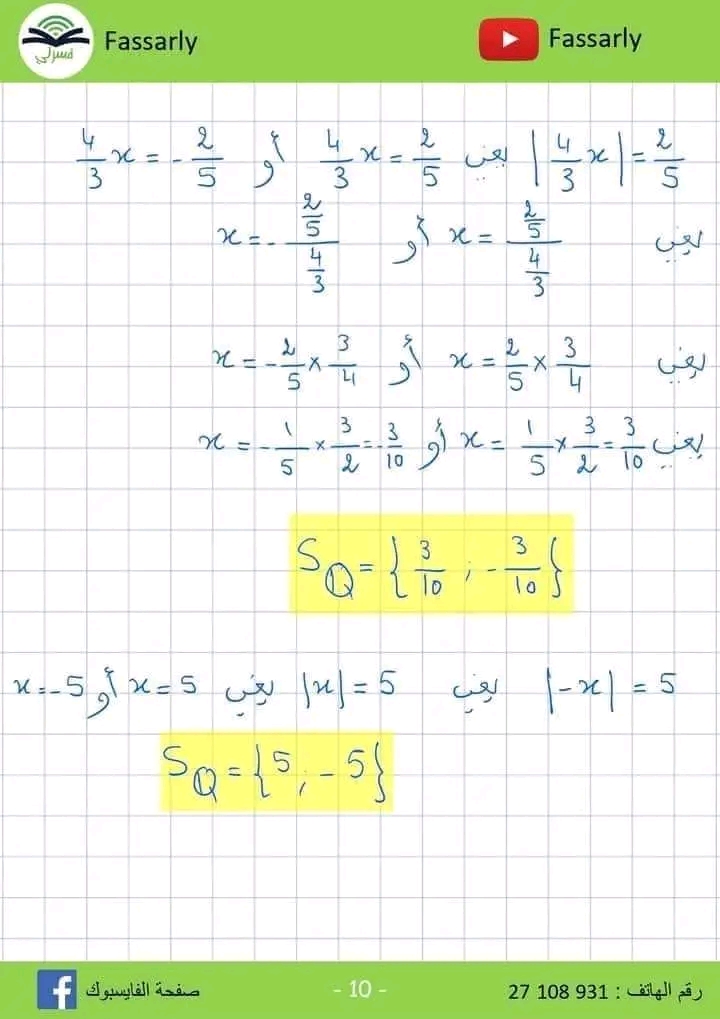 فسرلي Fassarly Fassarly
|4/3 x| = 2/5 يعني 4/3 x = 2/5 أو 4/3 x = -2/5
يعني x = (2/5)/(4/3) أو x = -(2/5)/(4/3)
يعني x = 2/5 × 3/4 أو x = -2/5 × 3/4
يعني x = 1/5 × 3/2 = 3/10 أو x = -1/5 × 3/2 = -3/10
S_ℚ = {3/10 ; -3/10}
|-x| = 5 يعني |x| = 5 يعني x = 5 أو x = -5
S_ℚ = {5 ; -5}
رقم الهاتف : 27 108 931 - 10 - صفحة الفايسبوك